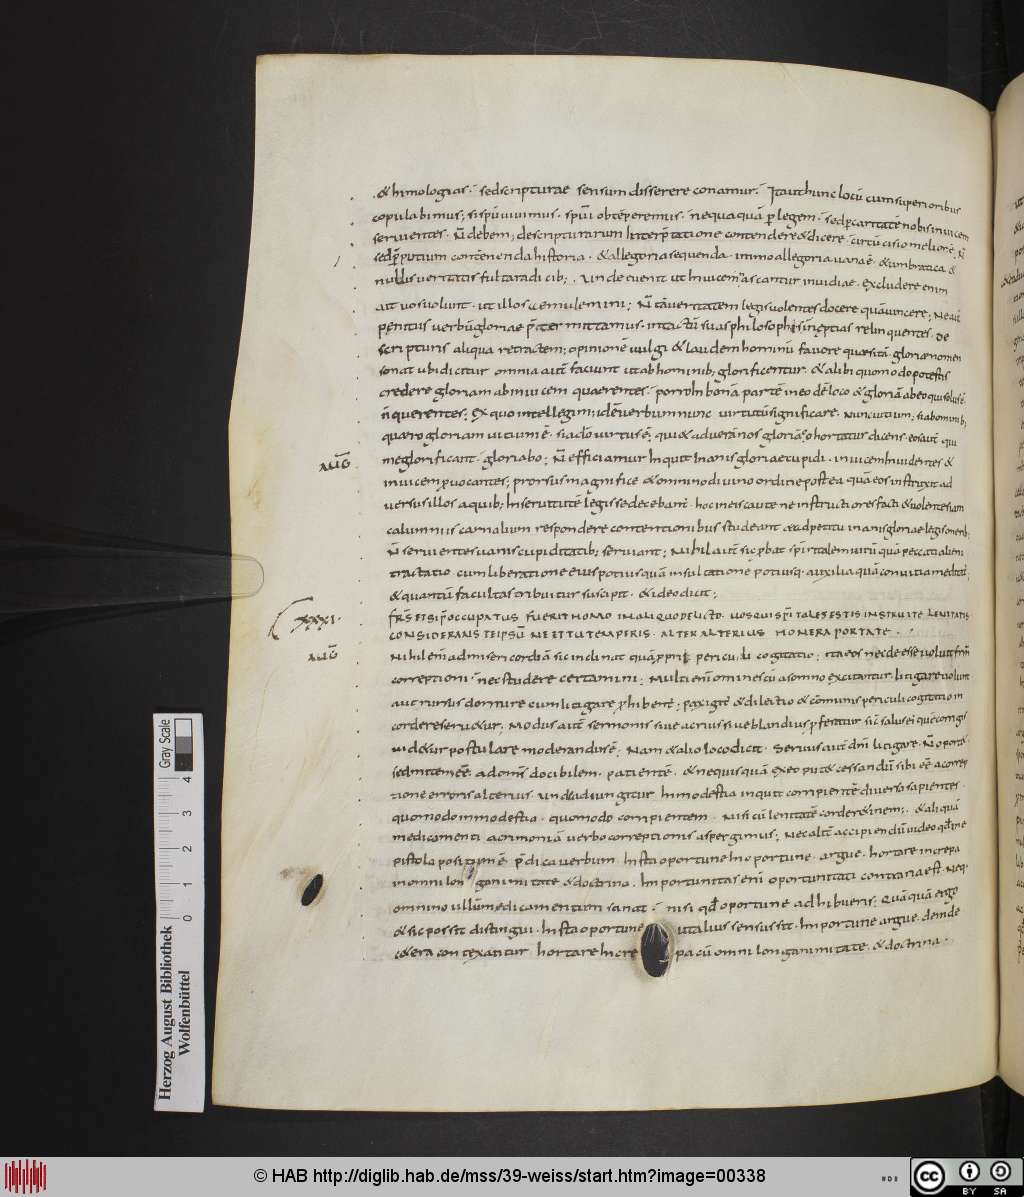 & himologias · sed scripturae sensum disserere conamur · Itaut hunc locū cum superioribus
copulabimus; si spū uiuimus · spūi obtēperemus · nequaquā p legem · sed p caritatē nobis inuicem
seruientes · N̄ debem; de scripturarum Interp̄tatione contendere & dicere · circūcisio melior ē; N̄
sed p̄putium contēnenda historia · & allegoria sequenda · immo allegoria uana ē · & umbratica &
nullis ueritatis fulta radicib; · Unde euenit ut Inuicem nascantur inuidiae · Excludere enim
ait uos uolunt · ut illos aemulemini; N̄ tā ueritatem legis uolentes docere quā uincere; Ne aūt
penitus uerbū gloriae p̄termittamus · intactū suas philosophis ineptias relinquentes · de
scripturis aliqua retractem; opinionē uulgi & laudem hominū fauore quaesitā gloriae nomen
sonat ubi dicitur omnia autē faciunt ut ab hominib; glorificentur · & alibi quomodo potestis
credere gloriam abinuicem quaerentes · porro In bonā partē in eo dē loco & gloriā ab eo qui solus ē
n̄ querentes; Ex quo intellegim; idē uerbum nunc uirtutē significare · Nunc uitium; si ab hominib;
quaero gloriam uitium ē · si a dō uirtus ē; qui & ad uerā nos gloriā cohortatur dicens · eos aūt qui
me glorificant · glorificabo; N̄ efficiamur Inquit Inanis gloriae cupidi · inuicem Inuidentes &
AUG
inuicem puocantes; prorsus magnifice & omnino diuino ordine postea quā eos instruxit ad
uersus illos a quib; In seruitutē legis seducebant · hoc in eis caute ne instructiores facti & uolentes iam
calumniis carnalium respondere contentionibus studeant & adpetitu inanis gloriae legis onerib;
N̄ seruientes uanis cupiditatib; seruiant; Nihil autē sic pbat spiritalem uirū quā peccati alieni
tractatio cum liberationē eius potius quā insultationē potiusq · auxilia quā conuitia meditat̄;
& quantū facultas tribuitur suscipit · & ideo dicit;
XXXI·
FRS ETSI P̄OCCUPATUS FUERIT HOMO IN ALIQUO DELICTO · UOS QUI SP̄ITALES ESTIS INSTRUITE LENITATIS
CONSIDERANS TEIPSŪ NE ET TU TEMPERIS · ALTER ALTERIUS HONERA PORTATE ·
AUG
Nihil enī ad misericordiā sic inclinat quā p̄prii periculi cogitatio; ita eos nec deesse uoluit frm̄
correptioni · nec studere certamini; Multi enī omines cū a somno excitantur litigare uolunt
aut rursus dormire cum litigare phibent; pax igit̄ & dilectio & cōmunis periculi cogitatio in
corde reseruetur; Modus autē sermonis siue acrius siue blandius pferatur sic̄ salus ei quē corrigis
uidetur postulare moderandus ē; Nam & alio loco dicit · Seruū autē dn̄i litigare · N̄ oportet ·
sed mitem eē ad omnes docibilem · patientē · & ne quisquā ex eo putet cessandū sibi eē a correp
tione erroris alterius uide quid iungitur In modestia inquit corripientē diuersa sapientes ·
quomodo in modestia · quomodo corripientem · Nisi cū lenitatē corde retinem; · & aliquā
medicamenti acrimoniā uerbo correptionis aspergimus; Nec alit̄ accipiendū uideo qđ in e
pistola positum ē p̄dica uerbum · Insta oportune Inoportune · argue · hortare increpa
in omni longanimitate & doctrina · Importunitas enī oportunitati contraria est · Neq·
omnino ullum medicamentum sanat · nisi qđ oportune adhibueris; Quāquā ergo
& sic possit distingui · Insta oportune ut alius sensus sit · Importune argue · deinde
cetera contexantur hortare Increpa cū omni longanimitate · & doctrina ·
Gray Scale
0 1 2 3 4
Herzog August Bibliothek
Wolfenbüttel
© HAB http://diglib.hab.de/mss/39-weiss/start.htm?image=00338
cc BY SA